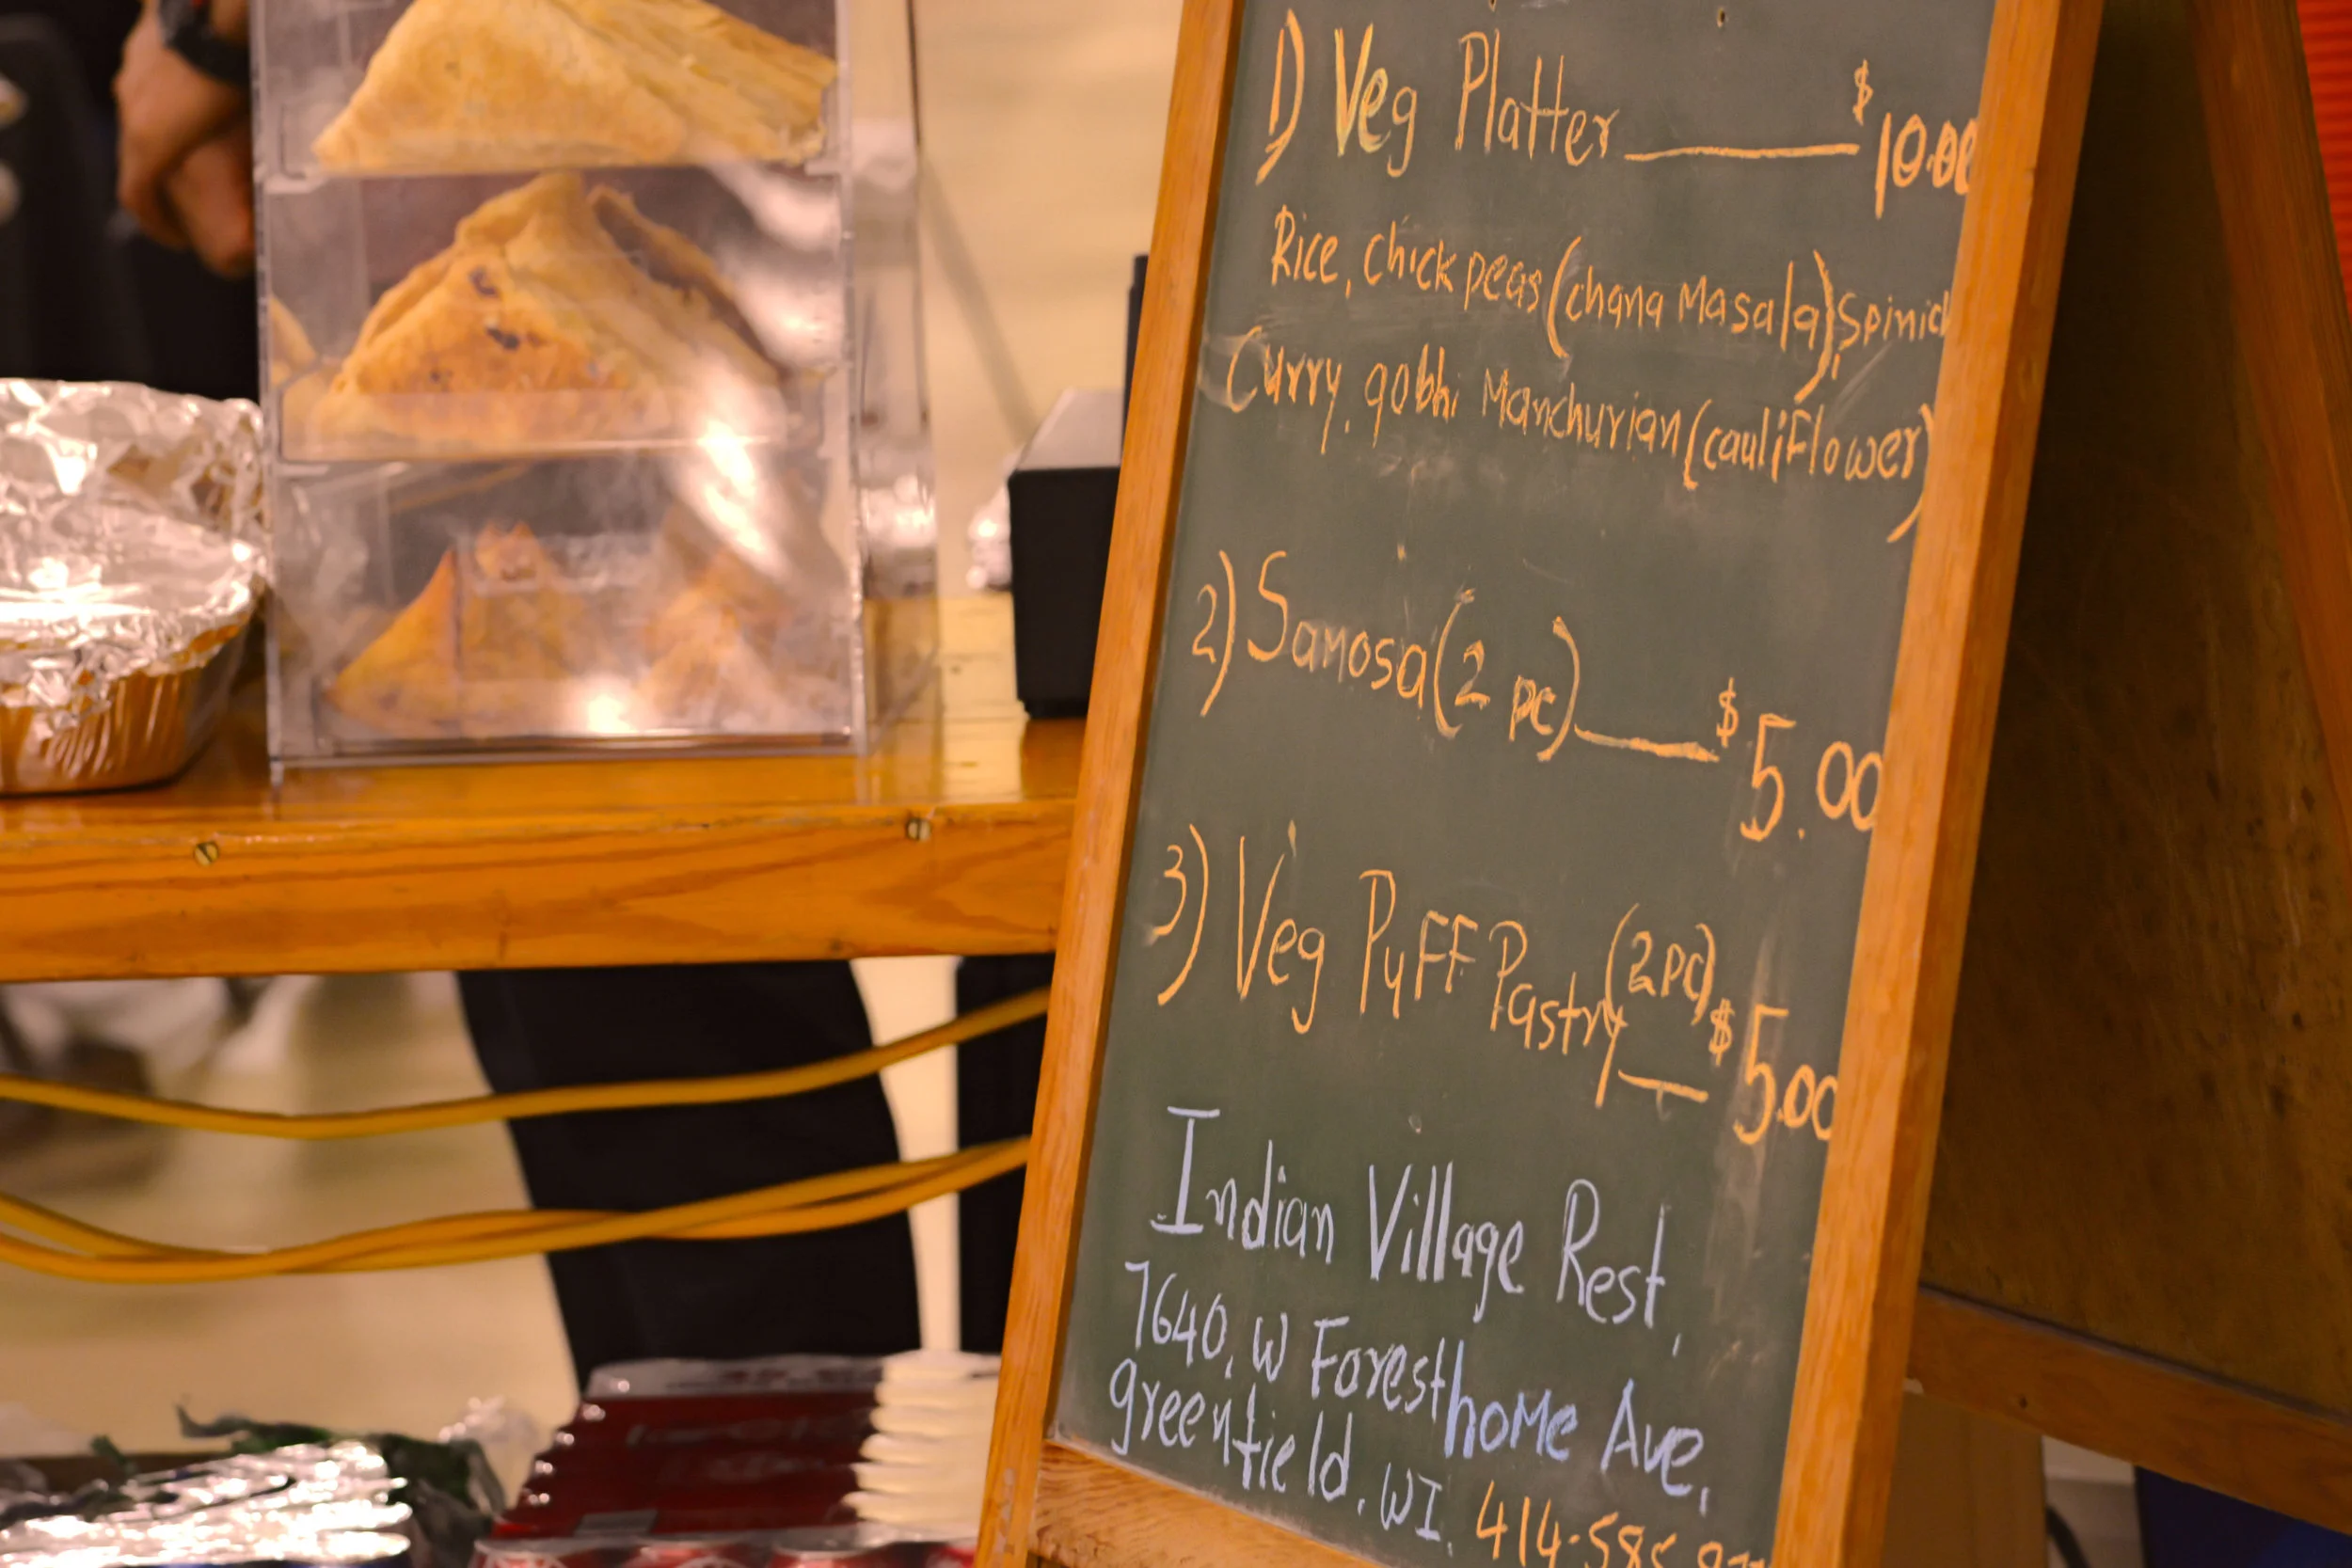 1) Veg Platter $10.00
Rice, Chickpeas (chana Masala), Spinich
Curry, gobhi Manchurian (cauliFlower)
2) Samosa (2 pc) $5.00
3) Veg PuFF Pastry (2 pc) $5.00
Indian Village Rest,
7640, W Foresthome Ave,
greenfield, WI, 414-585